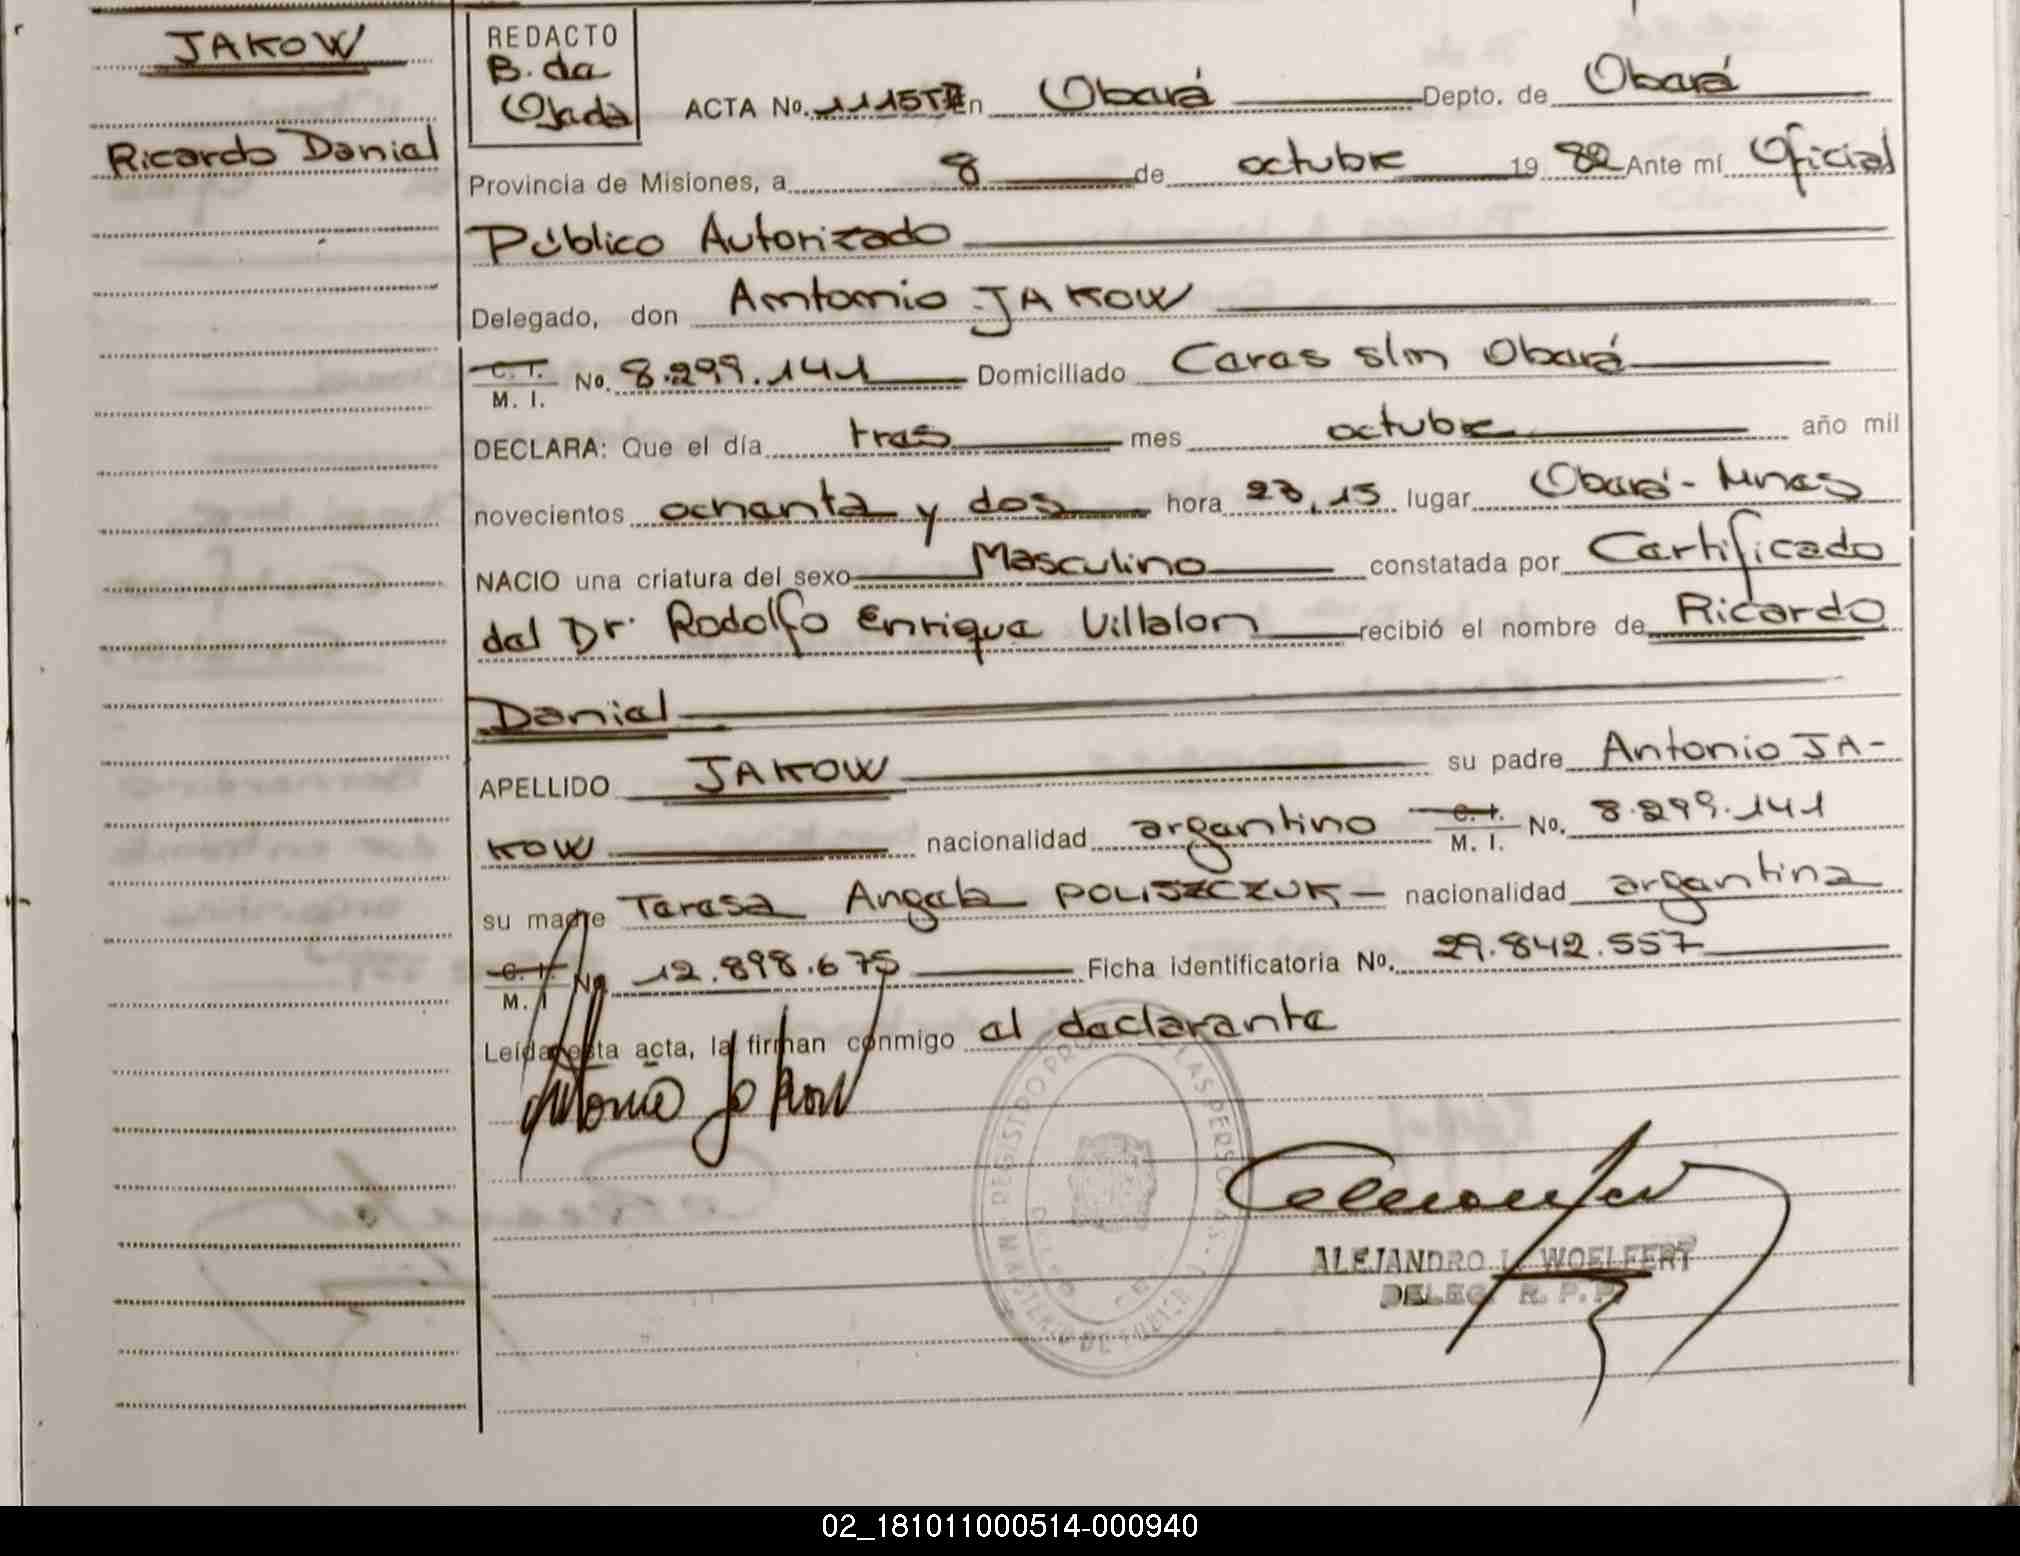 JAKOW
Ricardo Daniel
REDACTO
B. de
Ojeda
ACTA No. 1115T En Oberá Depto. de Oberá
Provincia de Misiones, a 8 de octubre 19 82 Ante mí Oficial
Público Autorizado
Delegado, don Antonio JAKOW
C. I. M. I. No. 8.299.141 Domiciliado Ceras s/n Oberá
DECLARA: Que el día tres mes octubre año mil
novecientos ochenta y dos hora 23,15 lugar Oberá - Mnes
NACIO una criatura del sexo Masculino constatada por Certificado
del Dr. Rodolfo Enrique Villalon recibió el nombre de Ricardo
Daniel
APELLIDO JAKOW su padre Antonio JA-
KOW nacionalidad argentino C. I. M. I. No. 8.299.141
su madre Teresa Angela POLISZCZUK nacionalidad argentina
C. I. M. I No 12.898.675 Ficha identificatoria No. 29.842.557
Leída esta acta, la firman conmigo el declarante
Antonio Jakow
ALEJANDRO L. WOELFERT
DELEG. R. P. P.
02_181011000514-000940